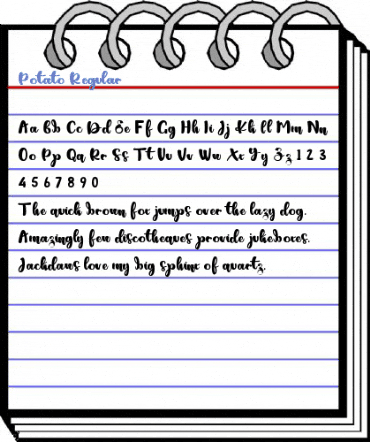 Potato Regular
Aa Bb Cc Dd Ee Ff Gg Hh Ii Jj Kk Ll Mm Nn
Oo Pp Qq Rr Ss Tt Uu Vv Ww Xx Yy Zz 1 2 3
4 5 6 7 8 9 0
The quick brown fox jumps over the lazy dog.
Amazingly few discotheques provide jukeboxes.
Jackdaws love my big sphinx of quartz.